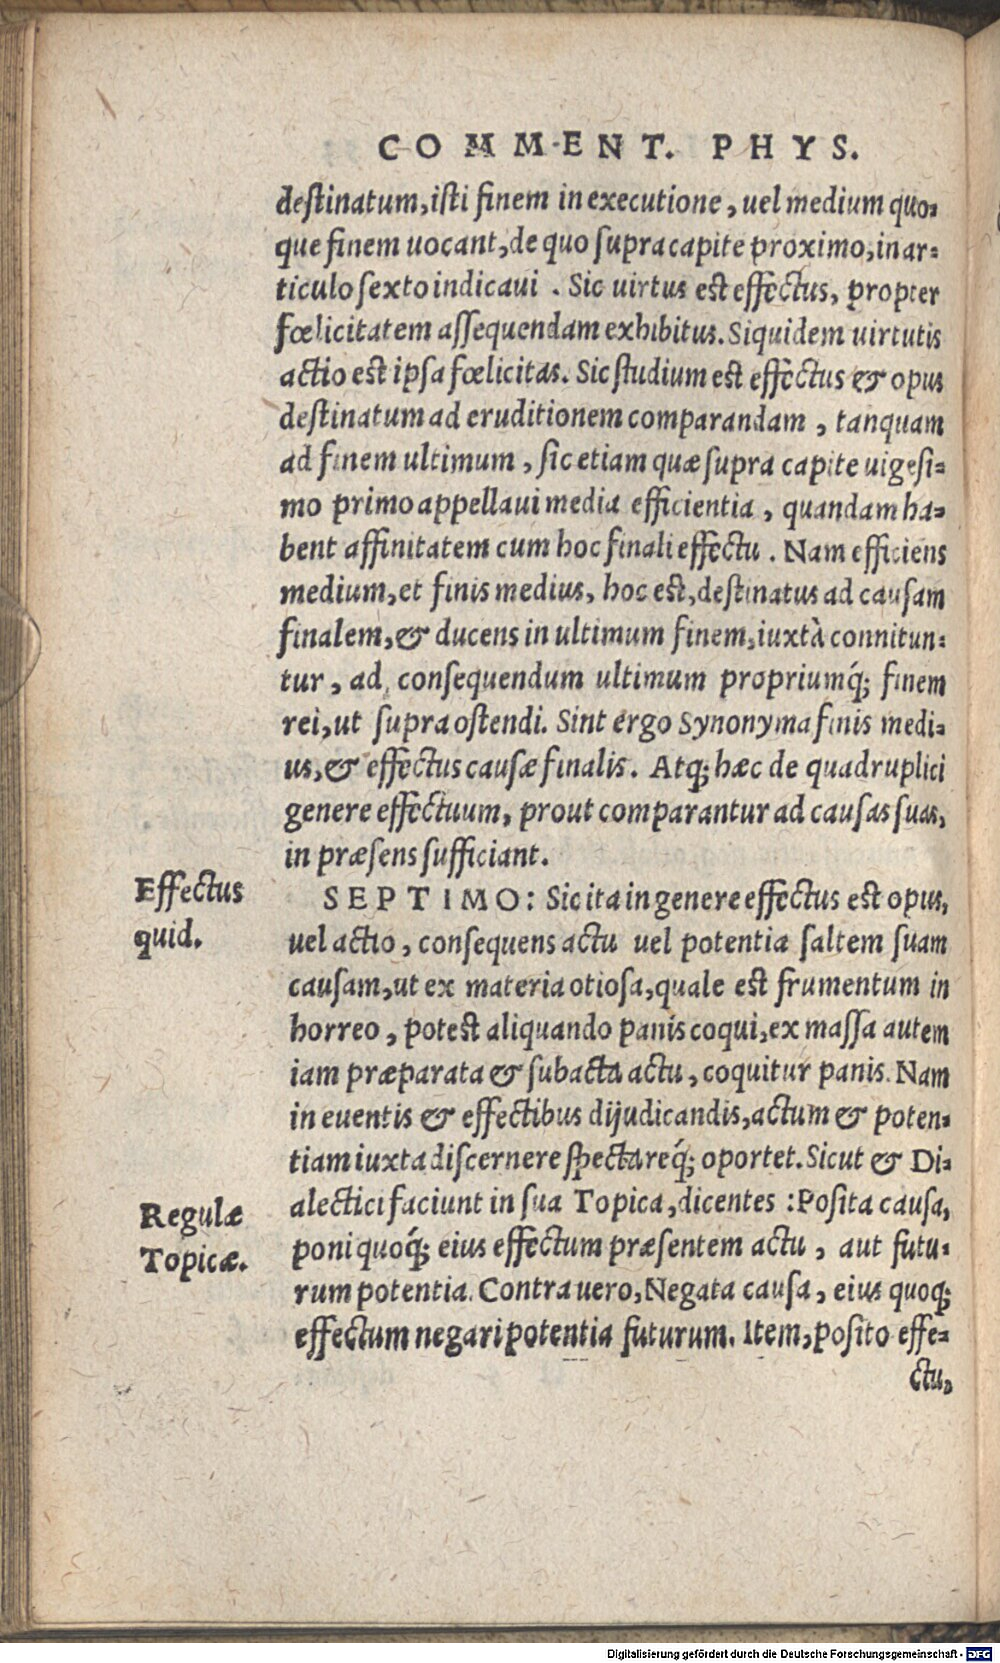 COMMENT. PHYS.
destinatum, isti finem in executione, uel medium quo-
que finem uocant, de quo supra capite proximo, in ar-
ticulo sexto indicaui. Sic uirtus est effectus, propter
fœlicitatem assequendam exhibitus. Siquidem uirtutis
actio est ipsa fœlicitas. Sic studium est effectus & opus
destinatum ad eruditionem comparandam, tanquam
ad finem ultimum, sic etiam quæ supra capite uigesi-
mo primo appellaui media efficientia, quandam ha-
bent affinitatem cum hoc finali effectu. Nam efficiens
medium, et finis medius, hoc est, destinatus ad causam
finalem, & ducens in ultimum finem, iuxtà connitun-
tur, ad consequendum ultimum propriumq́; finem
rei, ut supra ostendi. Sint ergo Synonyma finis medi-
us, & effectus causæ finalis. Atq; hæc de quadruplici
genere effectuum, prout comparantur ad causas suas,
in præsens sufficiant.
Effectus
quid.
SEPTIMO: Sic ita in genere effectus est opus,
uel actio, consequens actu uel potentia saltem suam
causam, ut ex materia otiosa, quale est frumentum in
horreo, potest aliquando panis coqui, ex massa autem
iam præparata & subacta actu, coquitur panis. Nam
in euentis & effectibus dijudicandis, actum & poten-
tiam iuxta discernere spectareq́; oportet. Sicut & Di-
alectici faciunt in sua Topica, dicentes: Posita causa,
Regulæ
Topicæ.
poni quoq́; eius effectum præsentem actu, aut futu-
rum potentia. Contra uero, Negata causa, eius quoq;
effectum negari potentia futurum. Item, posito effe-
ctu,
Digitalisierung gefördert durch die Deutsche Forschungsgemeinschaft - DFG